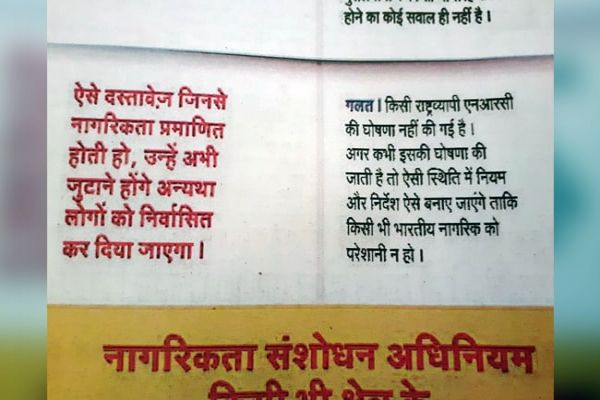 होने का कोई सवाल ही नहीं है।
ऐसे दस्तावेज़ जिनसे
नागरिकता प्रमाणित
होती हो, उन्हें अभी
जुटाने होंगे अन्यथा
लोगों को निर्वासित
कर दिया जाएगा।
गलत। किसी राष्ट्रव्यापी एनआरसी
की घोषणा नहीं की गई है।
अगर कभी इसकी घोषणा की
जाती है तो ऐसी स्थिति में नियम
और निर्देश ऐसे बनाए जाएंगे ताकि
किसी भी भारतीय नागरिक को
परेशानी न हो।
नागरिकता संशोधन अधिनियम